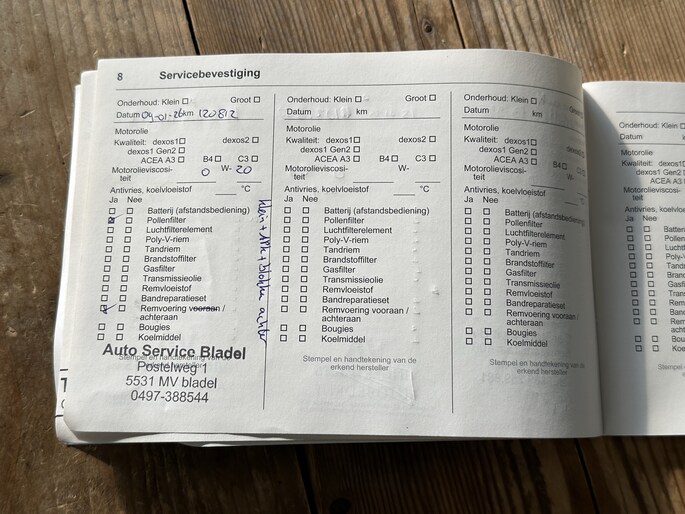 8 Servicebevestiging
Onderhoud: Klein Groot
Datum 09-01-26 km 120812
Motorolie
Kwaliteit: dexos1 dexos2
dexos1 Gen2
ACEA A3 B4 C3
Motorolieviscosi- 0 W- 20
teit
Antivries, koelvloeistof °C
Ja Nee
Batterij (afstandsbediening)
Pollenfilter
Luchtfilterelement
Poly-V-riem
Tandriem
Brandstoffilter
Gasfilter
Transmissieolie
Remvloeistof
Bandreparatieset
Remvoering vooraan /
achteraan
Bougies
Koelmiddel
Stempel en handtekening van de
Auto Service Bladel
Postelweg 1
5531 MV bladel
0497-388544
klein + APK + blokken achter
Onderhoud: Klein Groot
Datum km
Motorolie
Kwaliteit: dexos1 dexos2
dexos1 Gen2
ACEA A3 B4 C3
Motorolieviscosi- W-
teit
Antivries, koelvloeistof °C
Ja Nee
Batterij (afstandsbediening)
Pollenfilter
Luchtfilterelement
Poly-V-riem
Tandriem
Brandstoffilter
Gasfilter
Transmissieolie
Remvloeistof
Bandreparatieset
Remvoering vooraan /
achteraan
Bougies
Koelmiddel
Stempel en handtekening van de
erkend hersteller
Onderhoud: Klein Groot
Datum km
Motorolie
Kwaliteit: dexos1
dexos1 Gen2
ACEA A3 B4
Motorolieviscosi- W-
teit
Antivries, koelvloeistof
Ja Nee
Batterij (afstandsbediening)
Pollenfilter
Luchtfilterelement
Poly-V-riem
Tandriem
Brandstoffilter
Gasfilter
Transmissieolie
Remvloeistof
Bandreparatieset
Remvoering vooraan /
achteraan
Bougies
Koelmiddel
Stempel en handtekening van de
erkend hersteller
Onderhoud: Klein
Datum
Motorolie
Kwaliteit: dexos1
dexos1 Gen2
ACEA A3
Motorolieviscosi-
teit
Antivries, koelvloei
Ja Nee